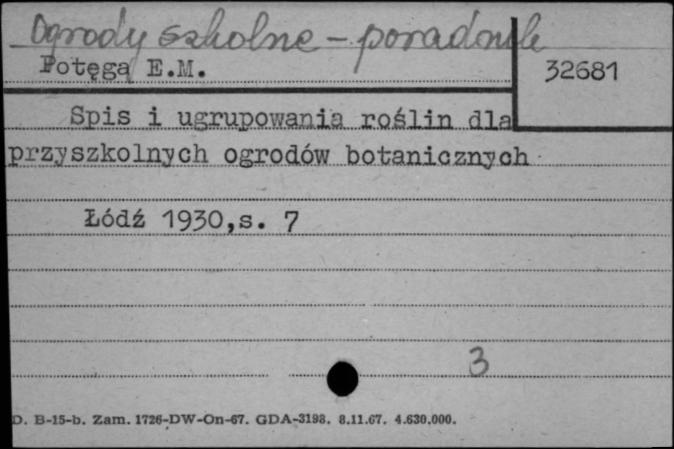 Ogrody szkolne - poradnik
Potęga E.M.
32681
Spis i ugrupowania roślin dla
przyszkolnych ogrodów botanicznych
Łódź 1930,s. 7
3
D. B-15-b. Zam. 1726-DW-On-67. GDA-3198. 8.11.67. 4.630.000.